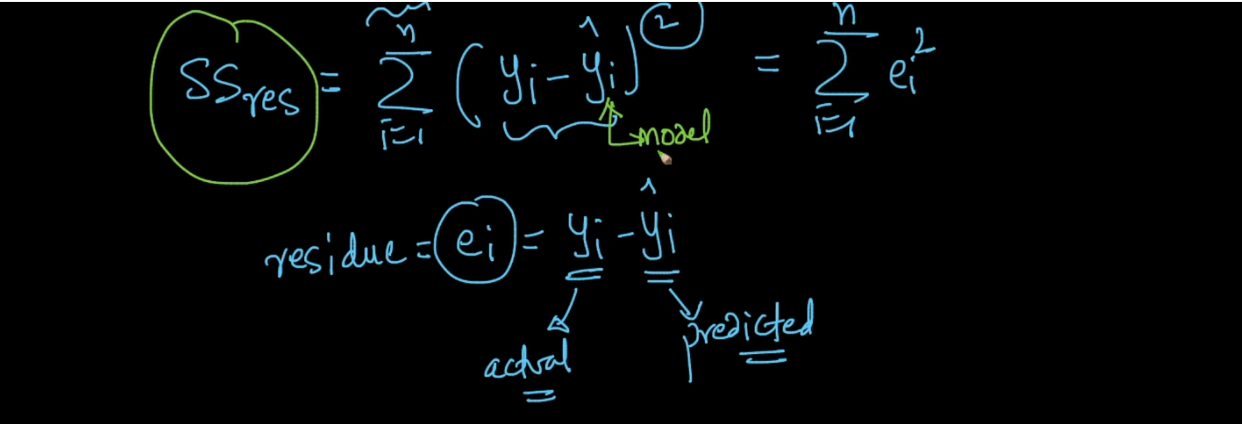 SSres = Σ_{i=1}^{n} (yi - ŷi)² = Σ_{i=1}^{n} ei²
model
residue = ei = yi - ŷi
actual predicted